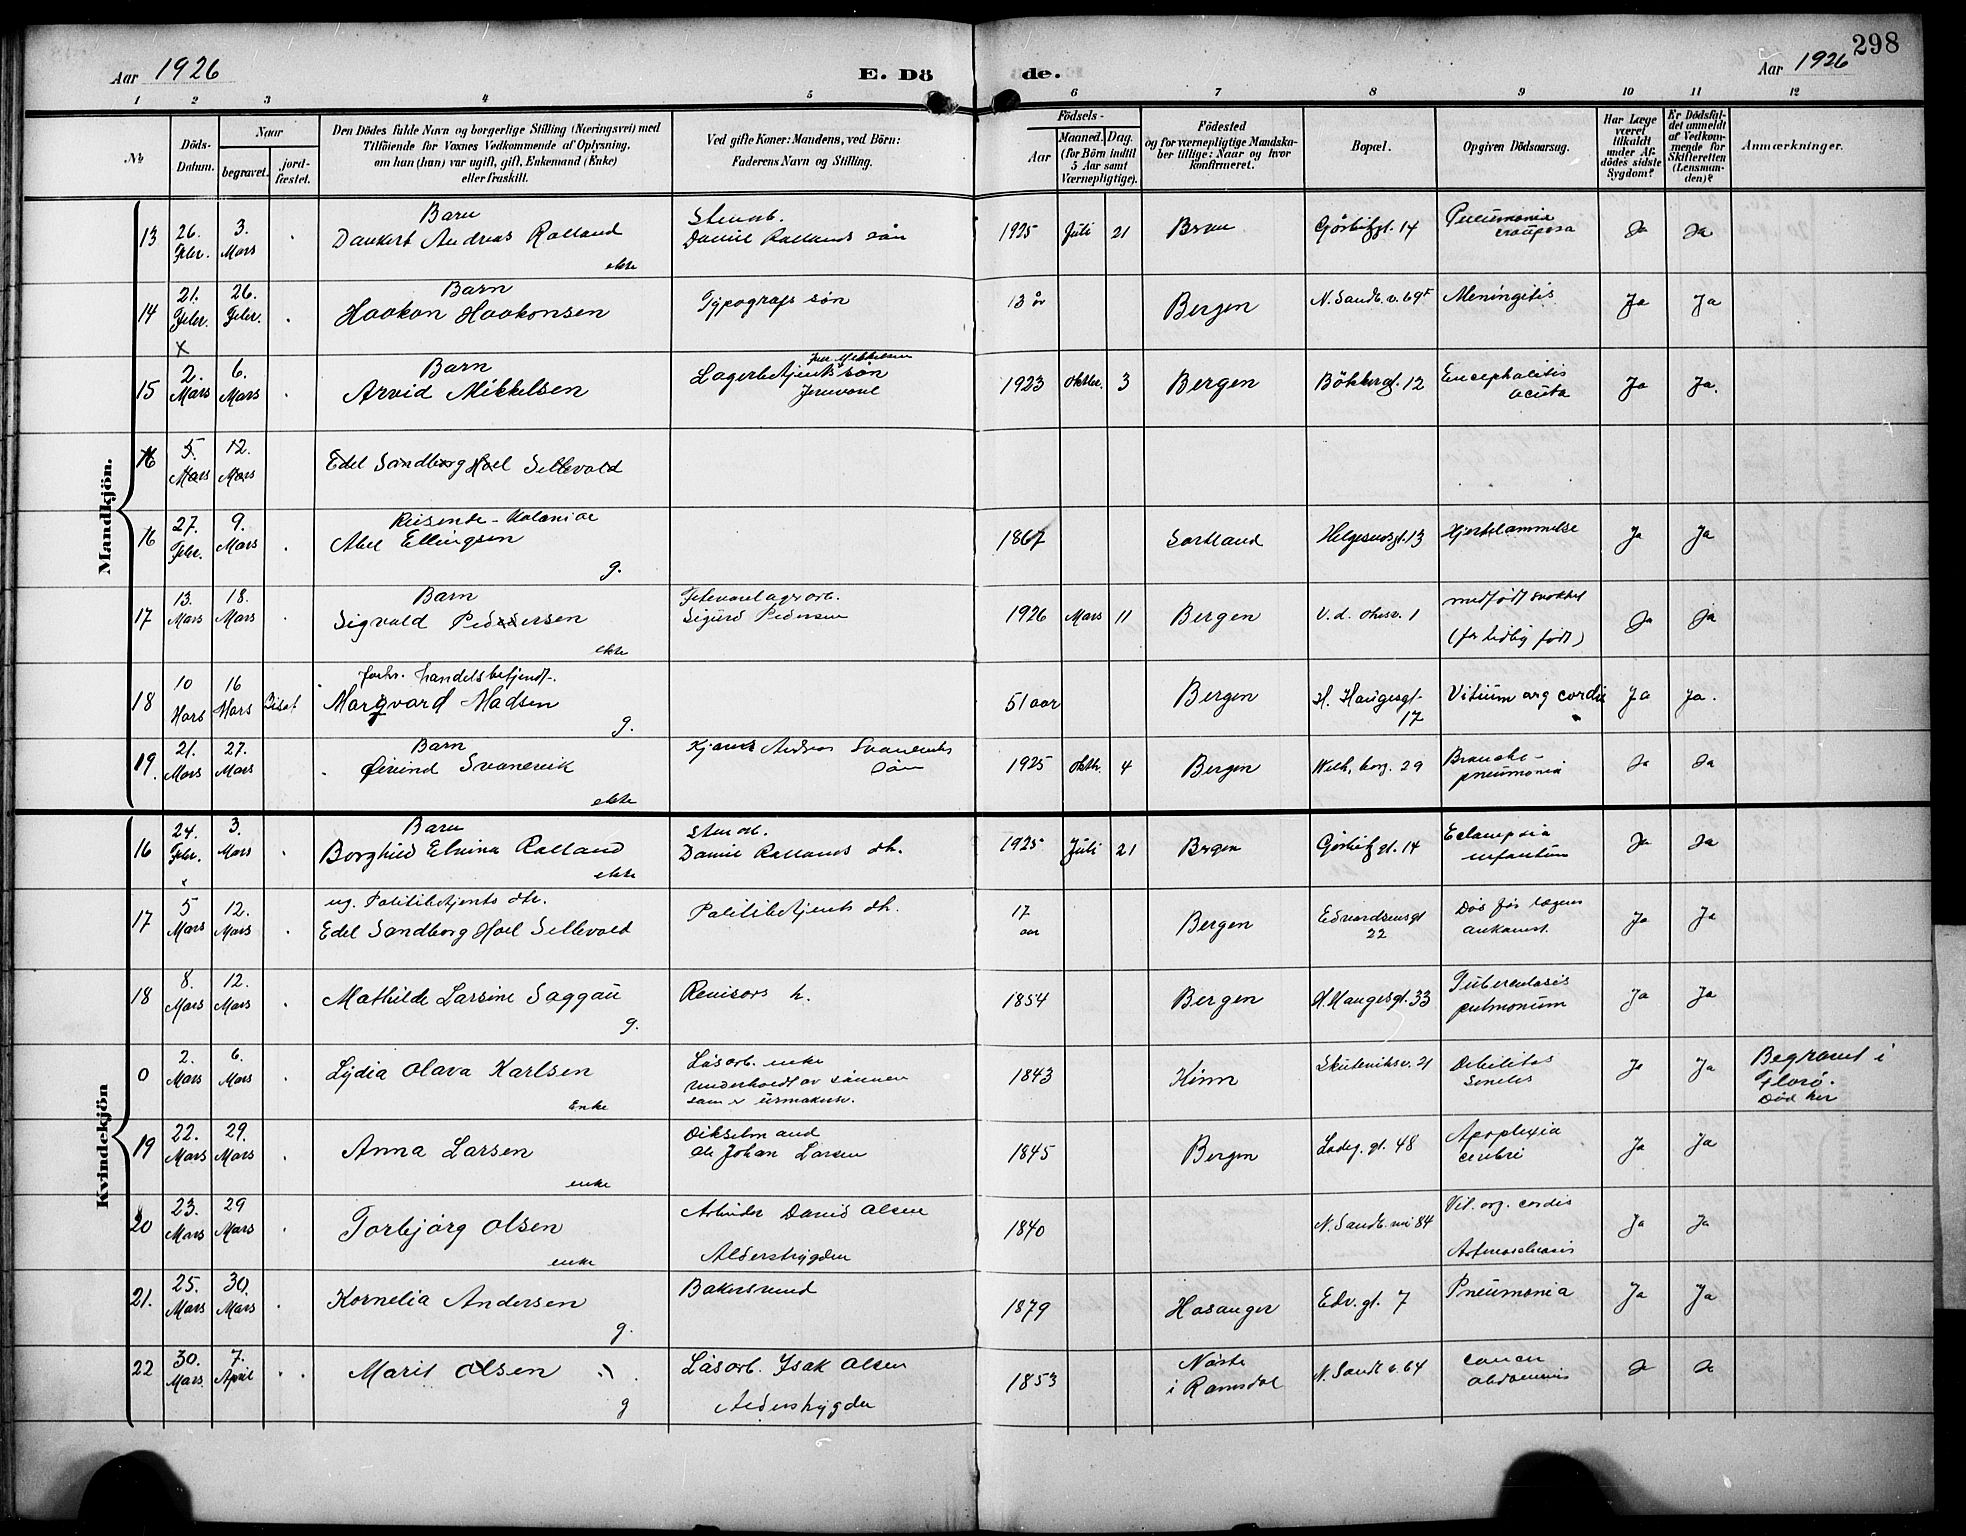 Aar 1926
E. Dö
de.
Aar 1926
298
1 2 3 4 5 6 7 8 9 10 11 12
No
Döds-
Datum.
Naar
begravet.
jord-
fæstet.
Den Dödes fulde Navn og borgerlige Stilling (Næringsvei) med
Tilföiende for Voxnes Vedkommende af Oplysning,
om han (hun) var ugift, gift, Enkemand (Enke)
eller fraskilt.
Ved gifte Koner: Mandens, ved Börn:
Faderens Navn og Stilling.
Födsels-
Aar
Maaned.
Dag.
(for Börn indtil
5 Aar samt
Værnepligtige).
Födested
og for værnepligtige Mandska-
ber tillige: Naar og hvor
konfirmeret.
Bopæl.
Opgiven Dödsaarsag.
Har Læge
været
tilkaldt
under Af-
dödes sidste
Sygdom?
Er Dödsfal-
det anmeldt
af Vedkom-
mende for
Skifteretten
(Lensman-
den)?
Anmærkninger.
Mandkjön.
13 26. Febr. 3. Mars
Barn
Dankert Andreas Rolland
ekte
Stenarb.
Daniel Rollands søn
1925 Juli 21 Bergen Görbitzgt. 14
Pneumonia
crouposa
Ja Ja
14 21. Febr. 26. Febr.
x
Barn
Haakon Haakonsen
Typografs søn
13 år Bergen N. Sandv. v. 69F Meningitis Ja Ja
15 2. Mars 6. Mars
Barn
Arvid Mikkelsen
Mikkelsen
Lagerbetjents søn
Jernvare
1923 Oktbr. 3 Bergen Bökkergt. 12
Encephalitis
acuta
Ja Ja.
16 5. Mars 12. Mars
Edel Sandborg Hoel Sellevold
16 27. Febr. 9. Mars
Reisende - Kolonial
Abel Ellingsen
g.
1867 Sortland Helgesensgt. 13 Hjertelammelse Ja Ja
17 13. Mars 18. Mars
Barn
Sigvald Pedersen
ekte
Sigurd Pedersen
1926 Mars 11 Bergen
medfødt svakhet
(for tidlig født)
Ja Ja
18 10 Mars 16 Mars Biset
forhv. handelsbetjent.
Marqvard Madsen
g.
51 aar Bergen
H. Haugesgt.
17
Vitium org cordis
Ja Ja.
19. 21. Mars 27. Mars
Barn
Øivind Svanevik
ekte
Andreas Svaneviks
søn
1925 Oktb. 4 Bergen
29
Broncho-
pneumonia
Ja Ja
Kvindekjön
16 24. Febr. 3. Mars
Barn
Borghild Elvina Rolland
ekte
Stenarb.
Daniel Rollands dtr.
1925 Juli 21 Bergen Görbitzgt. 14
Eclampsia
infantum
Ja Ja
17 5 Mars 12. Mars
ug. Politibetjents dtr.
Edel Sandborg Hoel Sellevold
Politibetjents dtr.
17
aar
Bergen
Edvardsensgt
22
Død før lægens
ankomst.
Ja Ja
18 8. Mars 12. Mars
Mathilde Larsine Saggau
g.
Revisors h.
1854 Bergen H. Haugesgt. 33
Tuberculosis
pulmonum
Ja Ja
0 2. Mars 6. Mars
Lydia Olava Karlsen
Enke
Løsarb. enke
underholdt av sønnen
som er urmakersv.
1843 Kinn Skuteviksv. 21
Debilitas
senilis
Ja Ja
Begravet i
Florø.
Död her
19 22. Mars 29. Mars
Anna Larsen
enke
Dikselmand
Ole Johan Larsen
1845 Bergen Ladeg. gt. 48
Apoplexia
cerebri
Ja Ja
20 23. Mars 29 Mars
Torbjörg Olsen
enke
Arbeider David Olsen
Alderstrygden
1840 N. Sandv. vei 84
Vit. org. cordis
Ja Ja
21. 25. Mars 30. Mars
Kornelia Andersen
g.
Bakersvend
1879 Hosanger Edv. gt. 7 Pneumonia Ja Ja
22 30. Mars. 7. April
Marit Olsen
g
Løsarb. Isak Olsen
Alderstrygden
1853
i Romsdal
N. Sandv. v. 64
Cancer
abdominis
Ja Ja